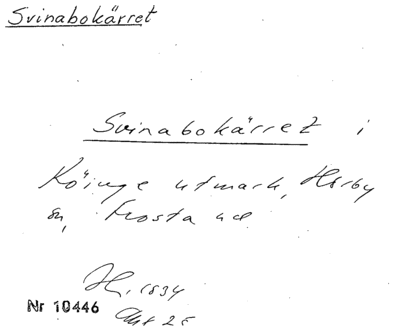 Svinabokärret
Svinabokärret i
Köinge utmark, Hörby
sn, Frosta hd
H. 1834
Nr 10446
Akt 25